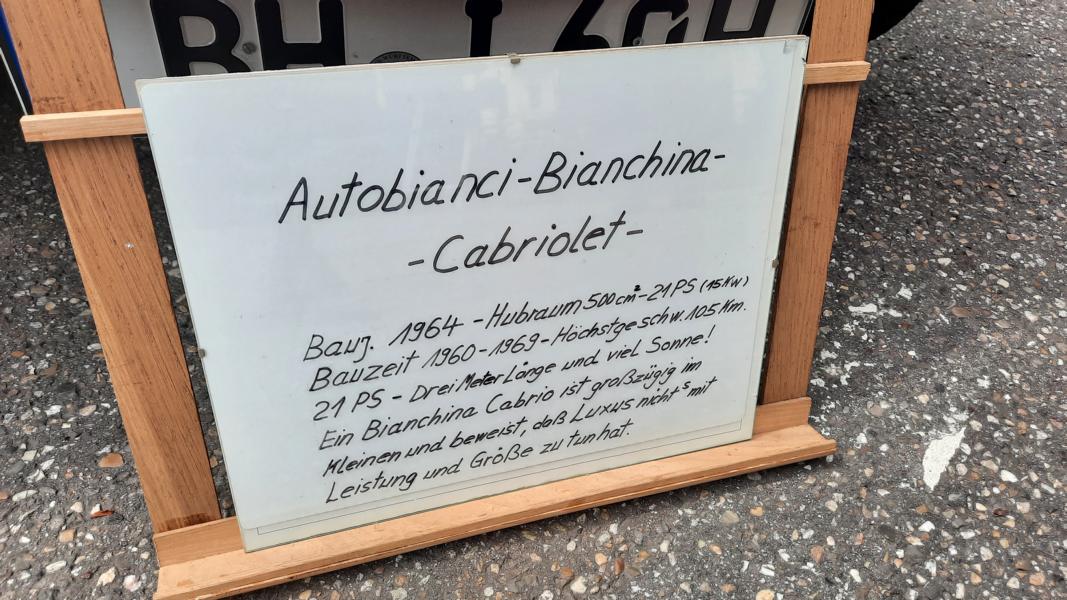 Autobianci-Bianchina-
-Cabriolet-
Bauj. 1964 - Hubraum 500 cm² - 21 PS (15 Kw)
Bauzeit 1960-1969 - Höchstgeschw. 105 Km.
21 PS - Drei Meter Länge und viel Sonne!
Ein Bianchina Cabrio ist großzügig im
Kleinen und beweist, daß Luxus nichts mit
Leistung und Größe zu tun hat.